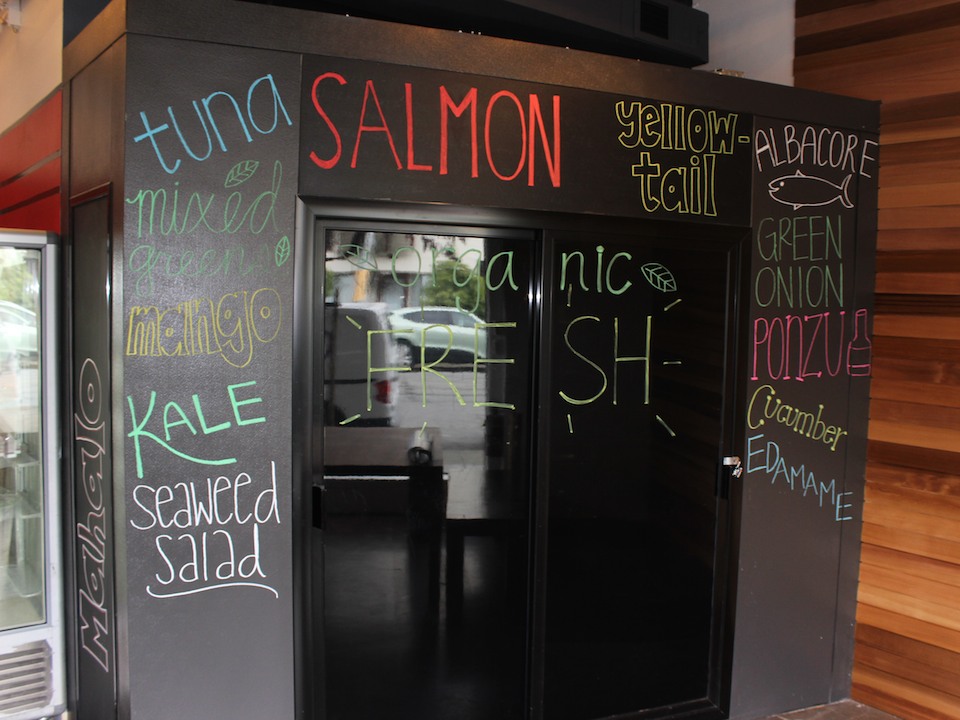 tuna
mixed
greens
mango
KALE
seaweed
salad
Mahalo
SALMON
yellow-
tail
organic
FRESH
ALBACORE
GREEN
ONION
PONZU
Cucumber
EDAMAME